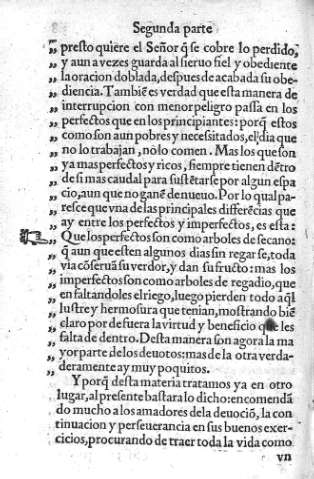 Segunda parte
„ presto quiere el Señor q̃ se cobre lo perdido,
„ y aun a vezes guarda al sieruo fiel y obediente
„ la oracion doblada, despues de acabada su obe-
„ diencia. Tambiẽ es verdad que esta manera de
„ interrupcion con menor peligro passa en los
„ perfectos que en los principiantes: porq̃ estos
„ como son aun pobres y necessitados, el dia que
„ no lo trabajan, no lo comen. Mas los que son
„ ya mas perfectos y ricos, siempre tienen dẽtro
„ de si mas caudal para sustẽtarse por algun espa
„ cio, aun que no ganẽ de nueuo. Por lo qual pa-
„ resce que vna de las principales differẽcias que
„ ay entre los perfectos y imperfectos, es esta:
„ Que los perfectos son como arboles de secano:
„ q̃ aun que esten algunos dias sin regarse, toda
„ via cõseruã su verdor, y dan su fructo: mas los
„ imperfectos son como arboles de regadio, que
„ en faltandoles el riego, luego pierden todo aq̃l
„ lustre y hermosura que tenian, mostrando biẽ
„ claro por defuera la virtud y beneficio que les
„ falta de dentro. Desta manera son agora la ma
„ yor parte de los deuotos: mas de la otra verda-
„ deramente ay muy poquitos.
Y porq̃ desta materia tratamos ya en otro
lugar, al presente bastara lo dicho: encomendã
do mucho a los amadores de la deuociõ, la con
tinuacion y perseuerancia en sus buenos exer-
cicios, procurando de traer toda la vida como
vn